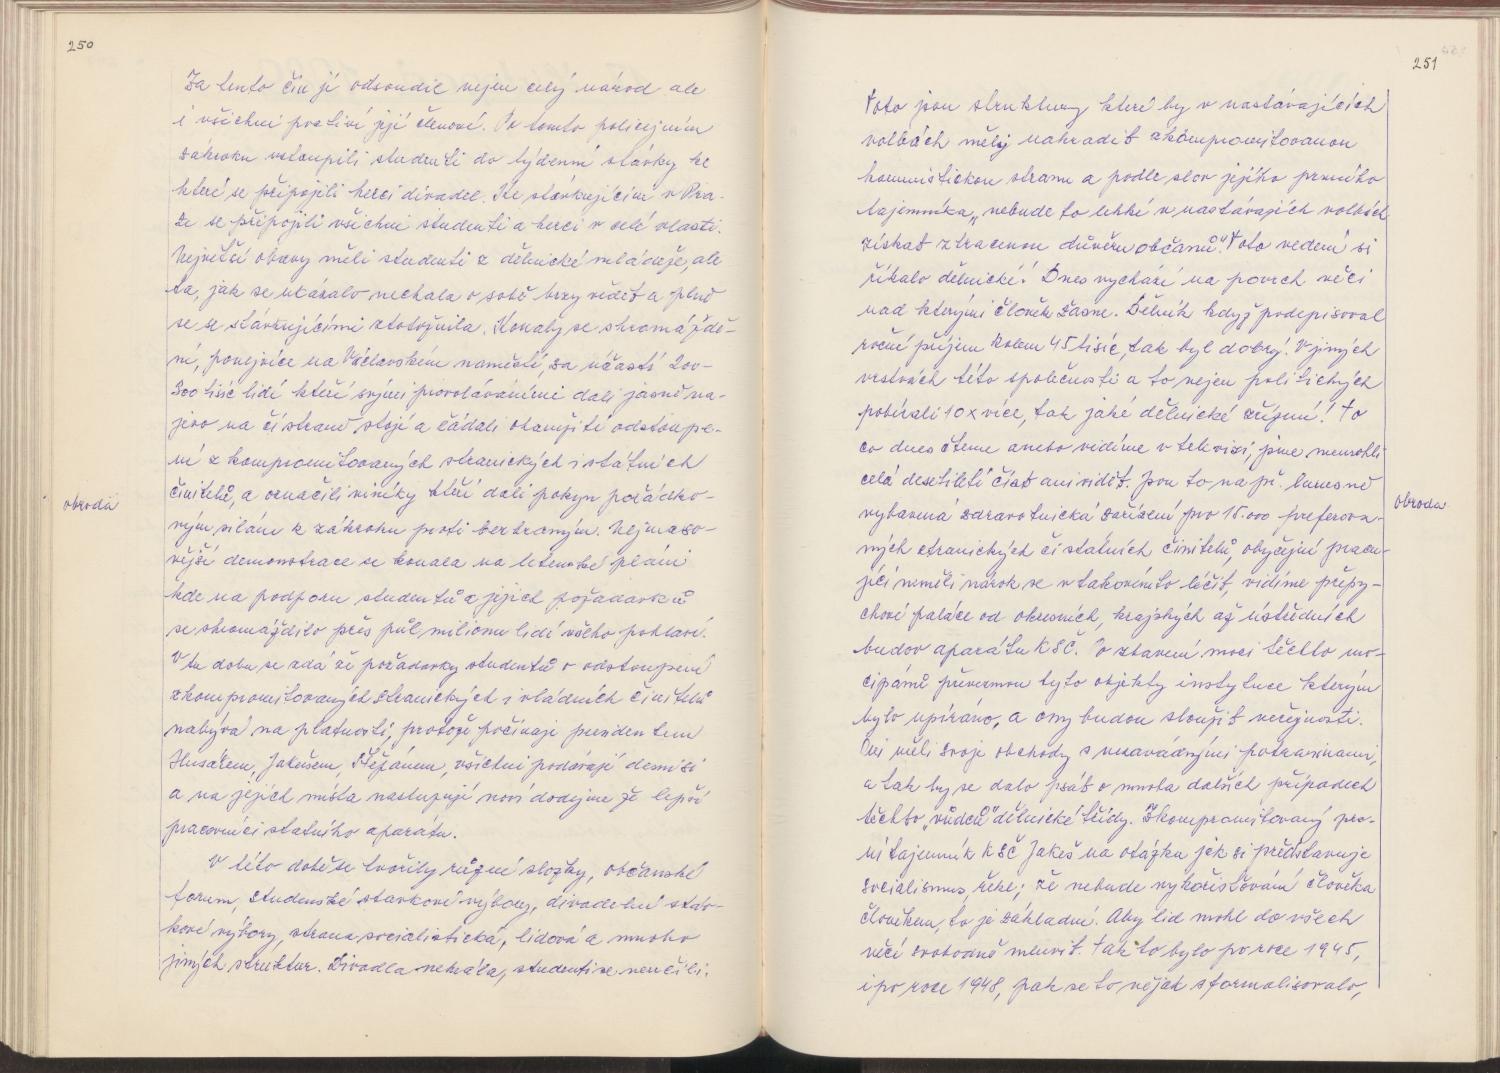 250
Za tento čin ji odsoudil nejen celý národ ale
i všichni poctiví její členové. Po tomto policejním
zákroku vstoupili studenti do týdenní stávky ke
které se připojili herci divadel. Ke stávkujícím v Pra-
ze se připojili všichni studenti a herci v celé vlasti.
Největší obavy měli studenti z dělnické mládeže, ale
ta, jak se ukázalo nechala o sobě brzy vědět a plně
se se stávkujícími ztotožnila. Konaly se shromáždě-
ní, ponejvíce na Václavském naměstí, za účasti 200-
300 tisíc lidí kteří svými provoláváními dali jasně na-
jevo na čí straně stojí a žádali okamžité odstoupe-
ní zkompromitovaných stranických i státních
činitelů, a označili viníky kteří dali pokyn pořádko-
vým silám k zákroku proti bezbranným. Nejmaso-
vější demonstrace se konala na letenské pláni
kde na podporu studentů a jejich požadavků
se shromáždilo přes půl milionu lidí všeho pohlaví.
V tu dobu se zdá že požadavky studentů o odstoupení
zkompromitovaných stranických i vládních činitelů
nabývá na platnosti, protože počínaje presidentem
Husákem, Jakešem, Štěpánem, všichni podávají demisi
a na jejich místa nastupují noví dodejme že lepší
pracovníci statního aparátu.
V této době se tvořily různé složky, občanské
forum, studenské stávkové výbory, divadelní stáv-
kové výbory, strana socialistická, lidová a mnoho
jiných struktur. Divadla nehrála, studenti se neučili.
obroda
251
Toto jsou struktury které by v nastávajících
volbách měly nahradit zkompromitovanou
komunistickou stranu a podle slov jejího prvního
tajemníka „nebude to lehké v nastávajích volbách
získat ztracenou důvěru občanů." Toto vedení si
říkalo dělnické! Dnes vychází na povrch věci
nad kterými člověk žasne. Dělník když podepisoval
roční příjem kolem 45 tisíc, tak byl dobrý. V jiných
vrstvách této společnosti a to nejen politických
pobírali 10x více, tak jaké dělnické zřízení! To
co dnes čteme anebo vidíme v televizi, jsme nemohli
celá desetiletí číst ani vidět. Jsou to např. luxusně
vybavená zdravotnická zařízení pro 15.000 preferova-
ných stranických či státních činitelů, obyčejní pracu-
jící neměli nárok se v takovémto léčit, vidíme přepy-
chové paláce od okresních, krajských až ústředních
budov aparátu KSČ. Po zbavení moci těchto mo-
cipánů převezmou tyto objekty instytuce kterým
bylo upíráno, a ony budou sloužit veřejnosti.
Oni měli svoje obchody s nezavádnými potravinami,
a tak by se dalo psát o mnoha dalších případech
těchto „vůdců" dělnické třídy. Zkompromitovaný prv-
ní tajemník KSČ Jakeš na otázku jak si představuje
socialismus, řekl; že nebude vykořisťování člověka
člověkem, to je základní. Aby lid mohl do všech
věcí svobodně mluvit. Tak to bylo po roce 1945,
i po roce 1948, pak se to nějak sformalisovalo,
obroda